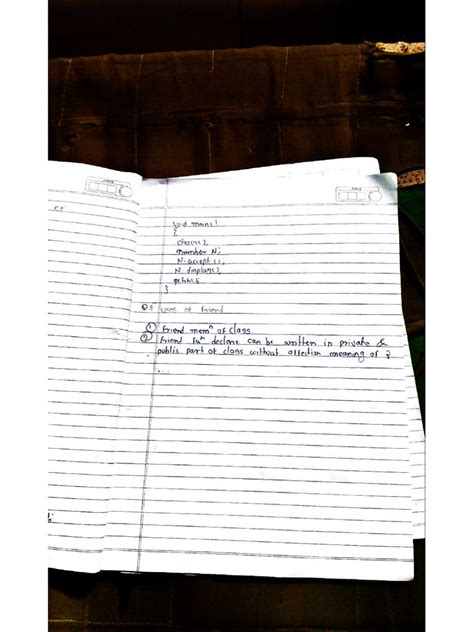 void main()
{
clrscr();
number N;
N.accept();
N.display();
getch();
}
Q5 uses of friend
① Friend mem^n of class
② Friend fu^n declare can be written in private &
public part of class without affection meaning of